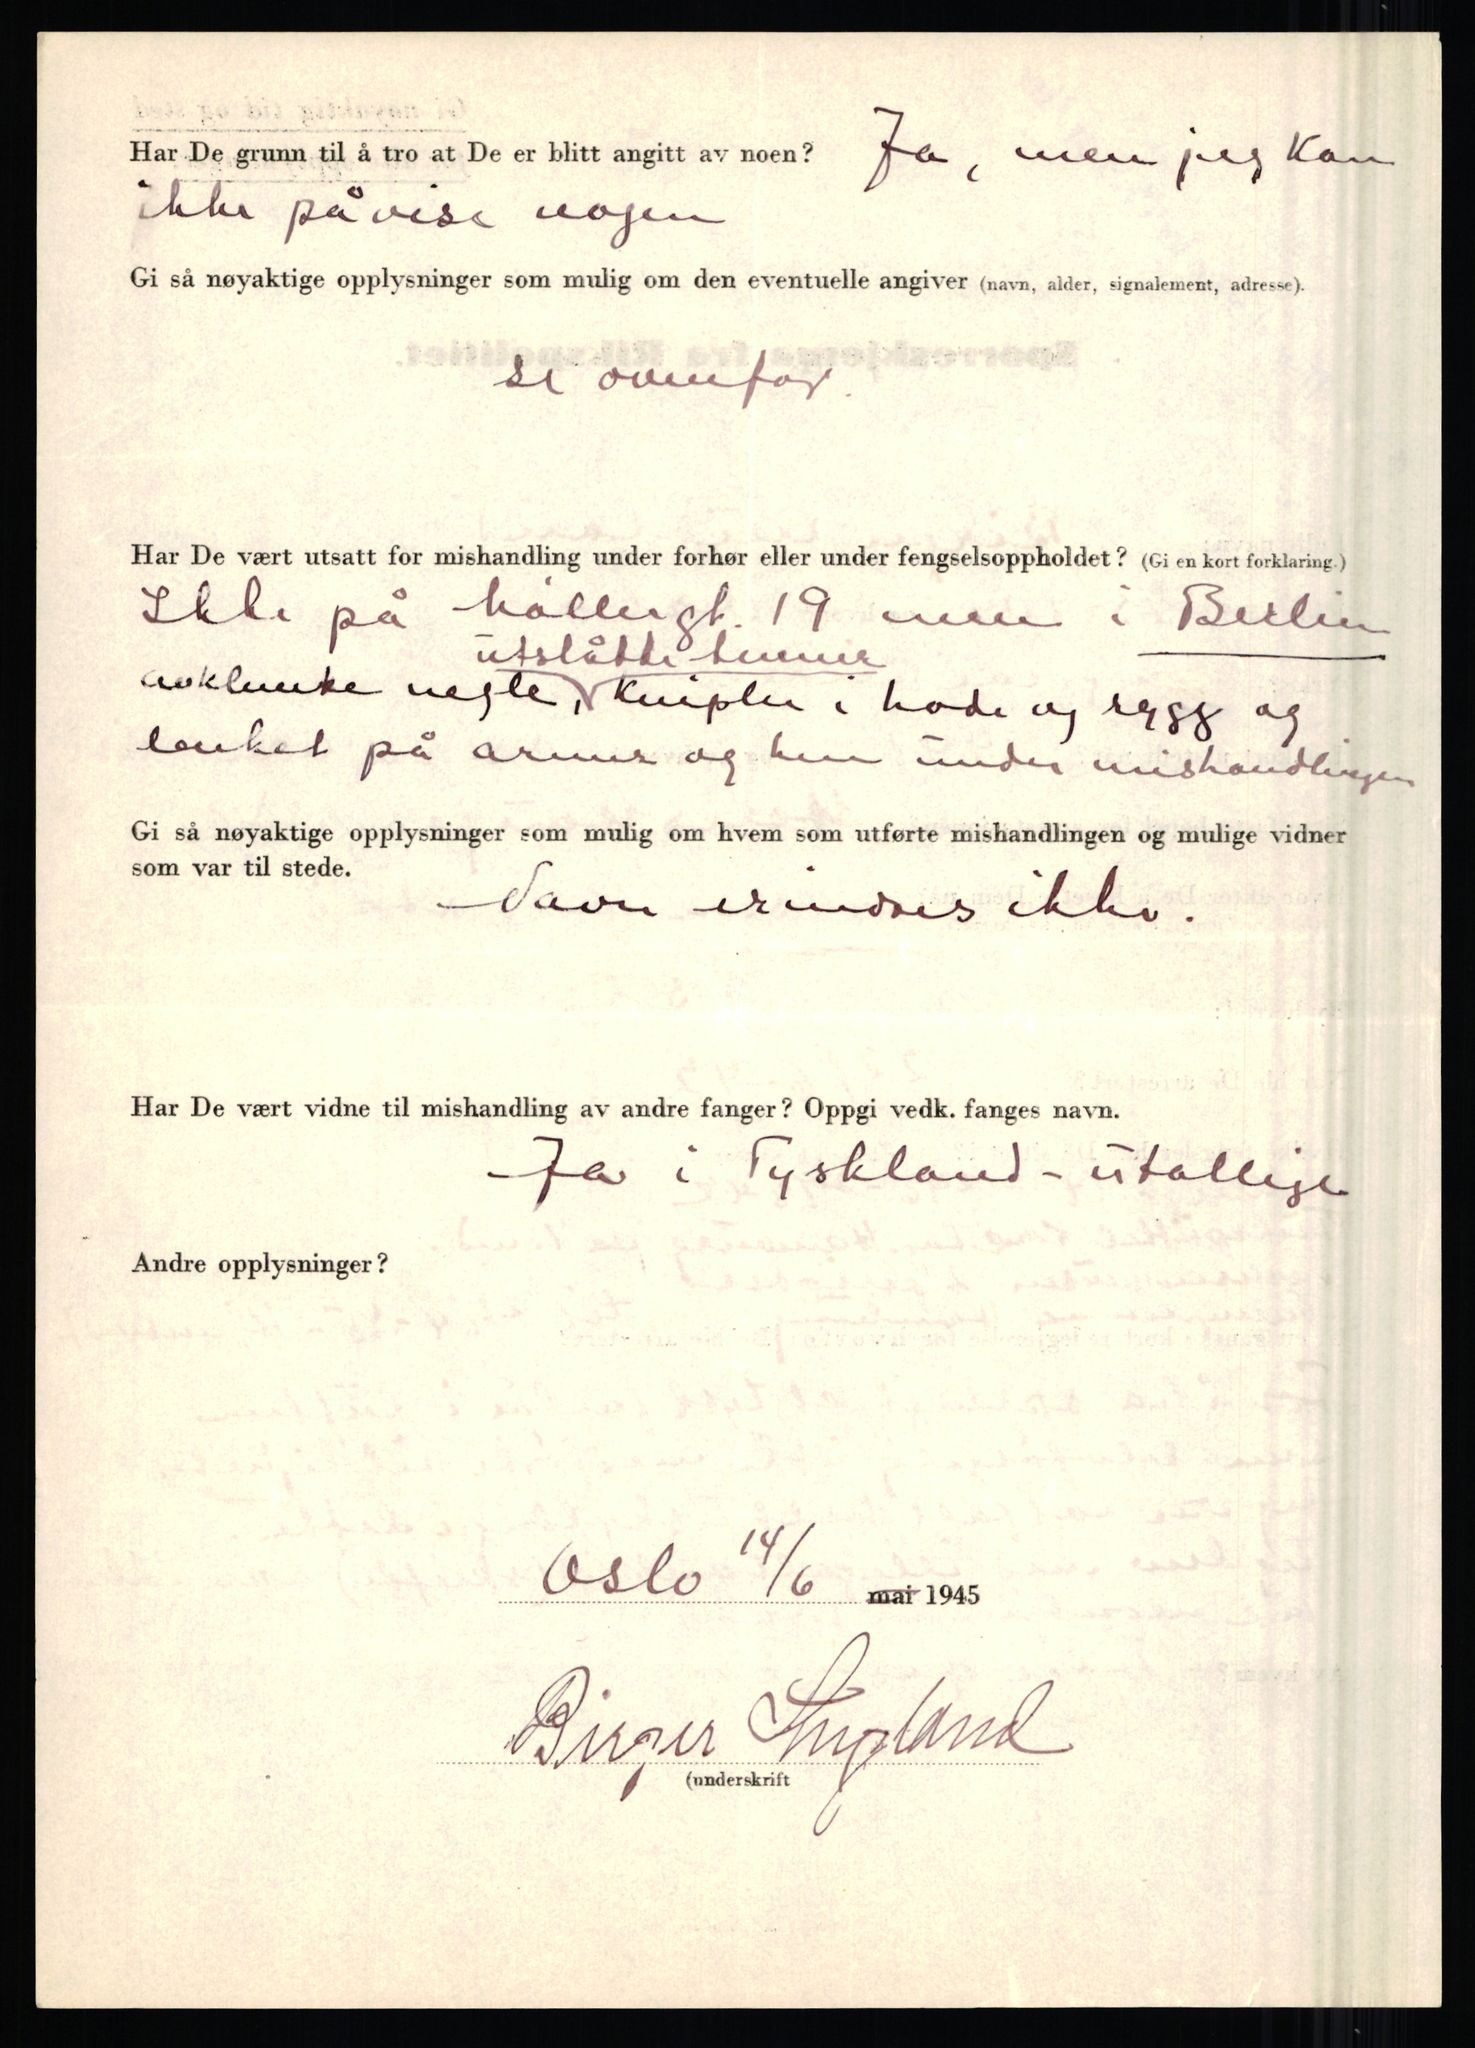 Har De grunn til å tro at De er blitt angitt av noen? Ja, men jeg kan
ikke påvise nogen
Gi så nøyaktige opplysninger som mulig om den eventuelle angiver (navn, alder, signalement, adresse).
se ovenfor.
Har De vært utsatt for mishandling under forhør eller under fengselsoppholdet? (Gi en kort forklaring.)
Ikke på Møllergt. 19 men i Berlin
utslåtte tenner
avklemte negle, knipler i hode og rygg og
lenket på armer og ben under mishandlingen
Gi så nøyaktige opplysninger som mulig om hvem som utførte mishandlingen og mulige vidner
som var til stede.
Navn erindres ikke.
Har De vært vidne til mishandling av andre fanger? Oppgi vedk. fanges navn.
Ja i Tyskland - utallige
Andre opplysninger?
Oslo 14/6 mai 1945
Birger
(underskrift